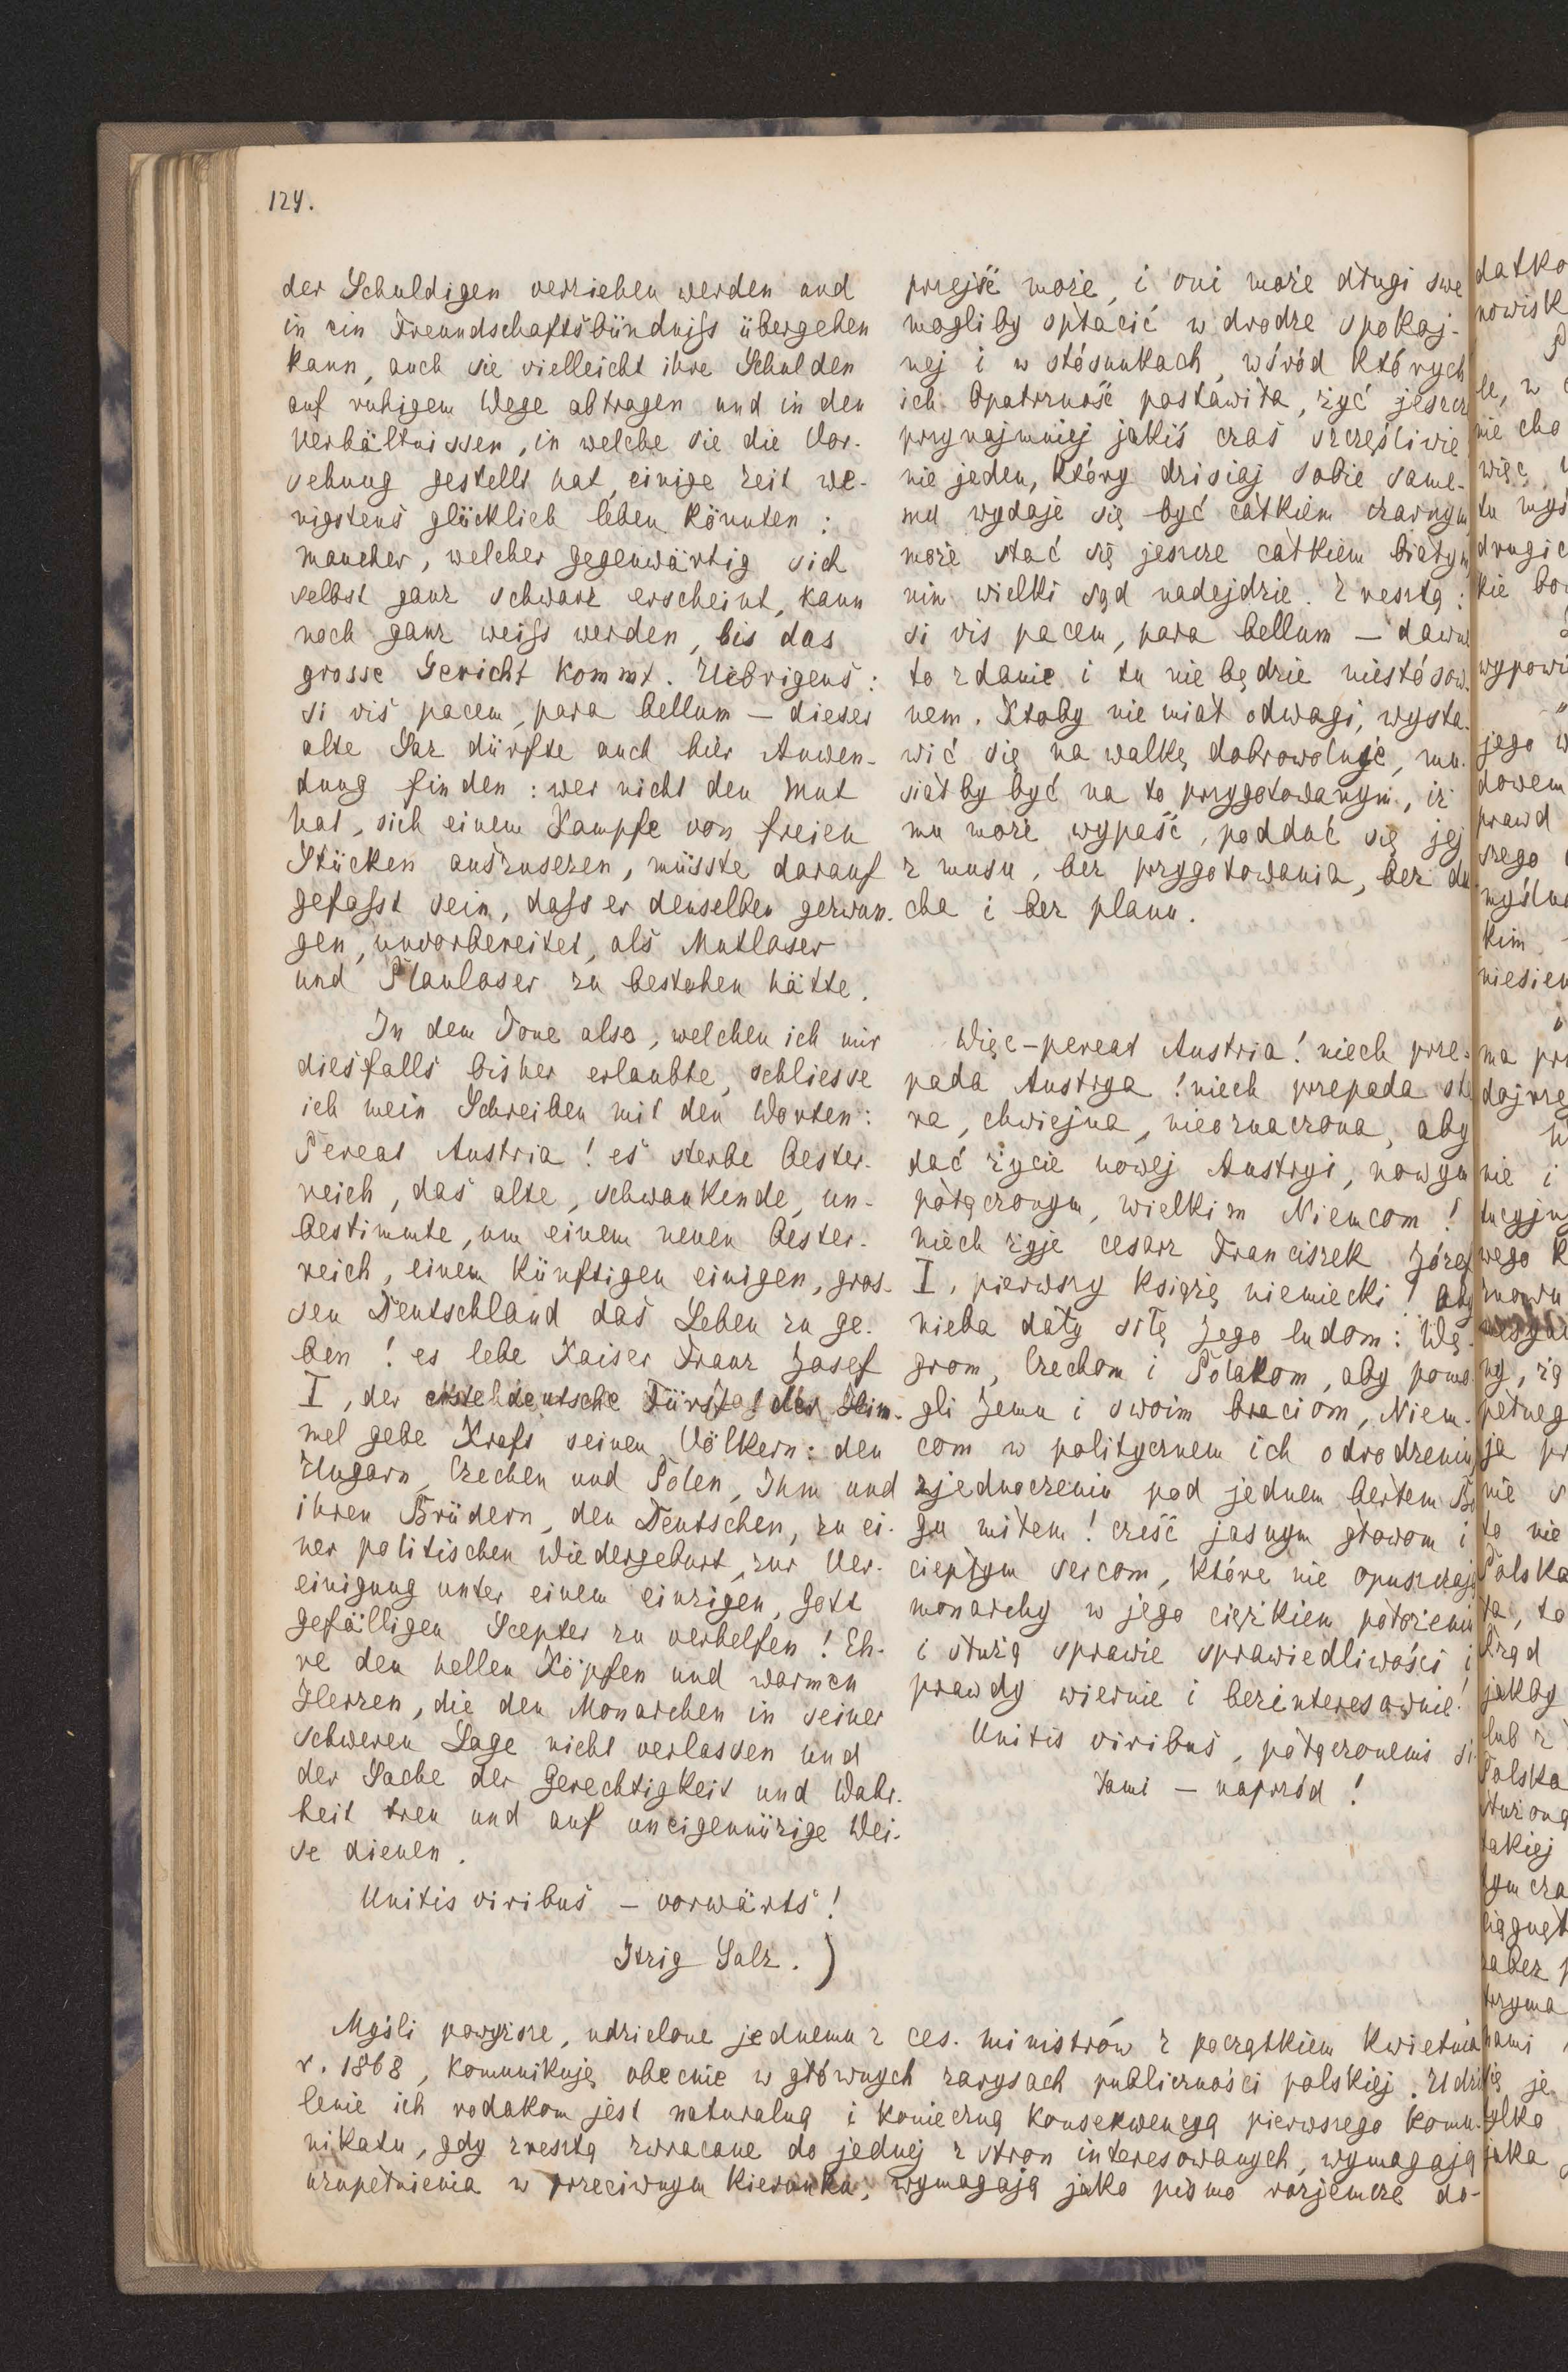 124.
der Schuldigen verziehen werden und
in ein Freundschaftsbündniss übergehen
kann, auch sie vielleicht ihre Schulden
auf ruhigem Wege abtragen und in den
Verhältnissen, in welche sie die Vor-
sehung gestellt hat, einige Zeit we-
nigstens glücklich leben könnten:
mancher, welcher gegenwärtig sich
selbst ganz schwarz erscheint, kann
noch ganz weiss werden, bis das
grosse Gericht kommt. Uibrigens:
si vis pacem, para bellum – dieser
alte Saz dürfte auch hier Anwen-
dung finden: wer nicht den Mut
hat, sich einem Kampfe von freien
Stücken auszusezen, müsste darauf
gefasst sein, dass er denselben gezwun-
gen, unvorbereitet, als Mutloser
und Planloser zu bestehen hätte.
In dem Tone also, welchen ich mir
diesfalls bisher erlaubte, schliesse
ich mein Schreiben mit den Worten:
Pereat Austria! es sterbe Oester-
reich, das alte, schwankende, un-
bestimmte, um einem neuen Oester-
reich, einem künftigen einigen, gros-
sen Deutschland das Leben zu ge-
ben! es lebe Kaiser Franz Josef
I, der erste deutsche Fürst! der Him-
mel gebe Kraft seinen Völkern: den
Ungarn, Czechen und Polen, Ihm und
ihren Brüdern, den Deutschen, zu ei-
ner politischen Wiedergeburt, zur Ver-
einigung unter einem einzigen, Gott
gefälligen Scepter zu verhelfen! Eh-
re den hellen Köpfen und warmen
Herzen, die den Monarchen in seiner
schweren Lage nicht verlassen und
der Sache der Gerechtigkeit und Wahr-
heit treu und auf uneigennüzige Wei-
se dienen.
Unitis viribus – vorwärts!
Itzig Salz.)
przejść może, i oni może długi swe
mogliby spłacić w drodze spokoj-
nej i w stósunkach, wśród których
ich Opatrzność postawiła, żyć jeszcz
przynajmniej jakiś czas szczęśliwie
nie jeden, który dzisiaj sobie same-
mu wydaje się być całkiem czarnym
może stać się jeszcze całkiem białym
nim wielki sąd nadejdzie. Zresztą:
si vis pacem, para bellum – dawne
to zdanie i tu nie będzie niestósow-
nem. Ktoby nie miał odwagi, wysta-
wić się na walkę dobrowolnie, mu-
siałby być na to przygotowanym, iż
mu może wypaść, poddać się jej
z musu, bez przygotowania, bez du-
cha i bez planu.
Więc – pereat Austria! niech prze-
pada Austrya! niech przepada sta
ra, chwiejna, nieoznaczona, aby
dać życie nowej Austryi, nowym
połączonym, wielkim Niemcom!
niech żyje cesarz Franciszek Józef
I, pierwszy książę niemiecki! oby
nieba dały siłę Jego ludom: Wę-
grom, Czechom i Polakom, aby pomo-
gli Jemu i swoim braciom, Niem-
com w politycznem ich odrodzeniu
zjednoczeniu pod jednem berłem Bo
gu miłem! cześć jasnym głowom i
ciepłym sercom, które nie opuszczają
monarchy w jego ciężkiem położeniu
i służą sprawie sprawiedliwości i
prawdy wiernie i bezinteresownie!
Unitis viribus, połączonemi si-
łami – naprzód!
Myśli powyższe, udzielone jednemu z ces. ministrów z początkiem Kwietnia
r. 1868, komunikuję obecnie w głównych zarysach publiczności polskiej. Udzie
lenie ich rodakom jest naturalną i konieczną konsekwencyą pierwszego komu-
nikatu, gdy zresztą zwracane do jednej z stron interesowanych, wymagają
uzupełnienia w przeciwnym kierunku, wymagają jako pismo rozjemcze do-